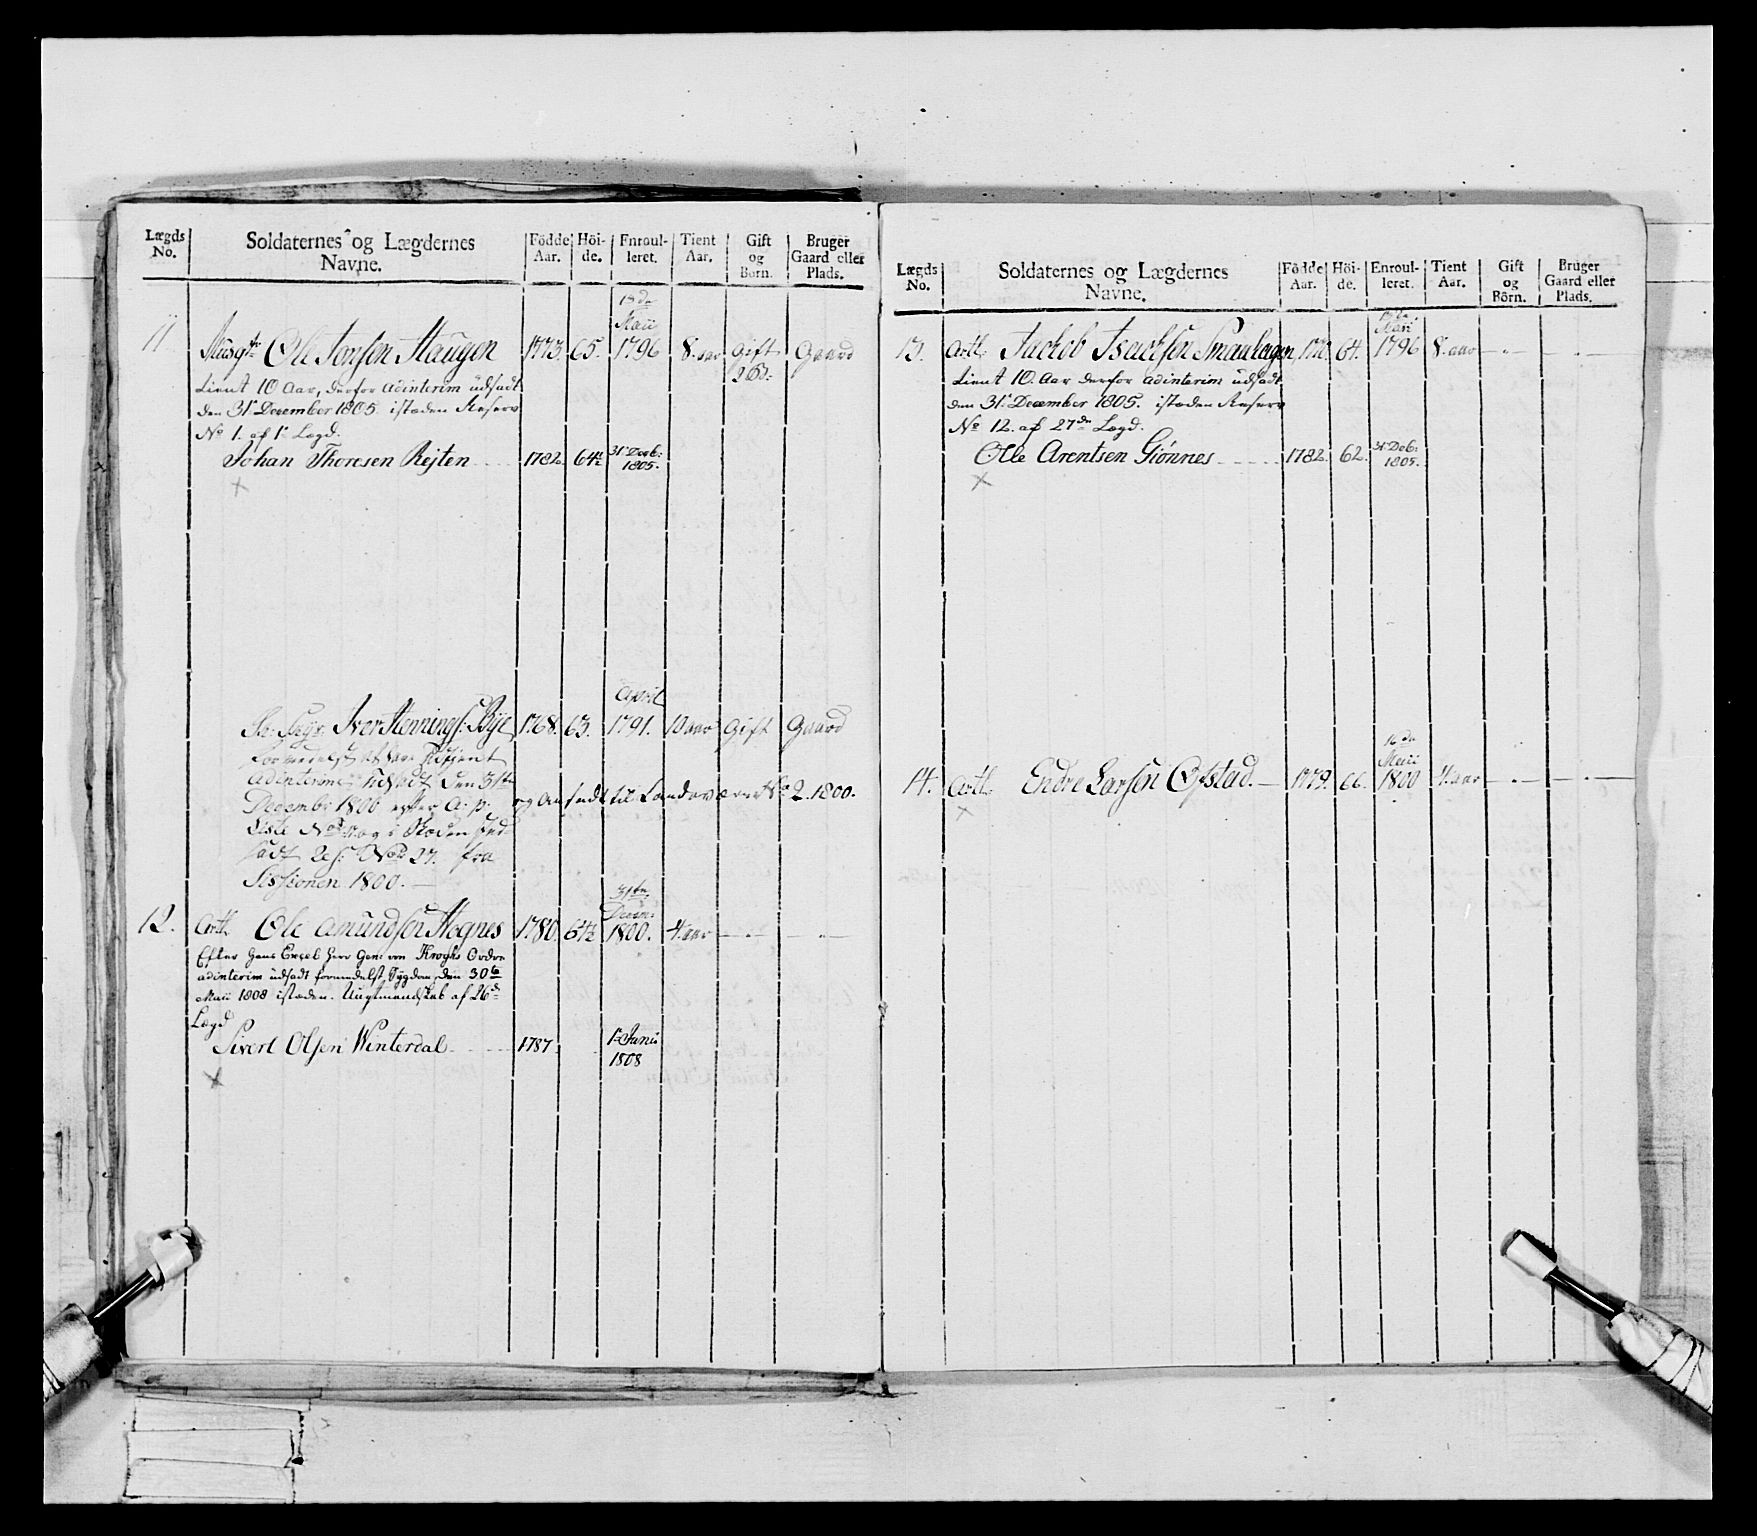 Lægds No. | Soldaternes og Lægdernes Navne. | Födde Aar. | Höi-de. | Enroul-leret. | Tient Aar. | Gift og Børn. | Bruger Gaard eller Plads.
18de Maii
11 Musqtr Ole Jonsen Haugen 1773. 65. 1796 8. aar Gift 2 B: Gaard
tient 10 Aar, derfor adinterim udsadt
den 31 December 1805. istæden Reserv
No 1. af 1te Lægd.
Johan Thoresen Rejten 1782 64½ 31 Decb: 1805.
April
Iver Hennings: Bye 1768. 63. 1791. 10 aar Gift Gaard
adinterim udsadt den 31te
Decembr 1800 efter A: p: og ansadt til Landeværnet No 2. 1800.
Liste No og i Stæden ind
sadt Res: No 27. fra
Sessionen 1800.
31te Decem:
12. Artl. Ole Amundsen Hognes 1780. 64½ 1800. 4. aar
Efter Hans Excel Herr Gen: von Kroghs Ordre
adinterim udsadt formedelst Sygdom den 30te
Maii 1808 istæden. Ungtmandskab af 26de
Lægd
Sivert Olsen Winterdal 1787 1 Junii 1808
Lægds No. | Soldaternes og Lægdernes Navne. | Födde Aar. | Höi-de. | Enroul-leret. | Tient Aar. | Gift og Börn. | Bruger Gaard eller Plads.
Maii
13. Artl. Jackob Isachsen Smaahagen 64. 1796 8. aar
tient 10. Aar derfor adinterim udsadt
den 31 December 1805. istæden Reserv
No 12. af 27de Lægd.
Olle Arentsen Giönnes 1782. 62. 31 Decb: 1805.
16de Maii
14. Artl. Endre Larsen Ofstad. 1779. 66. 1800 4. aar